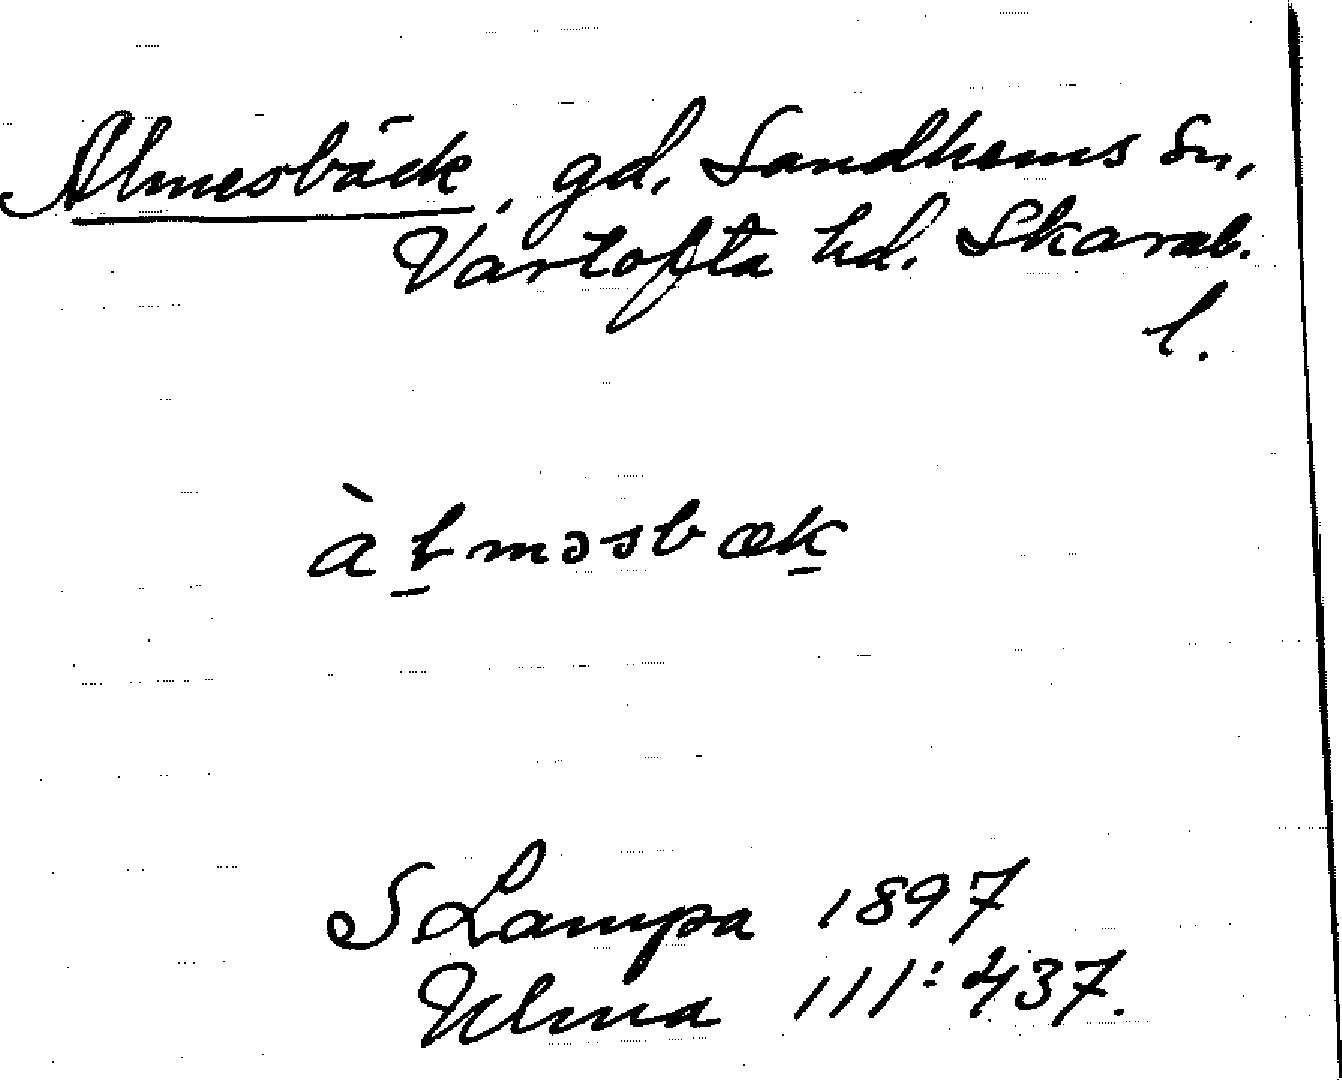 Almesbäck, gd, Sandhems sn,
Vartofta hd. Skarab.
l.
àłməsbæk
S Lampa 1897
Ulma 111:437.